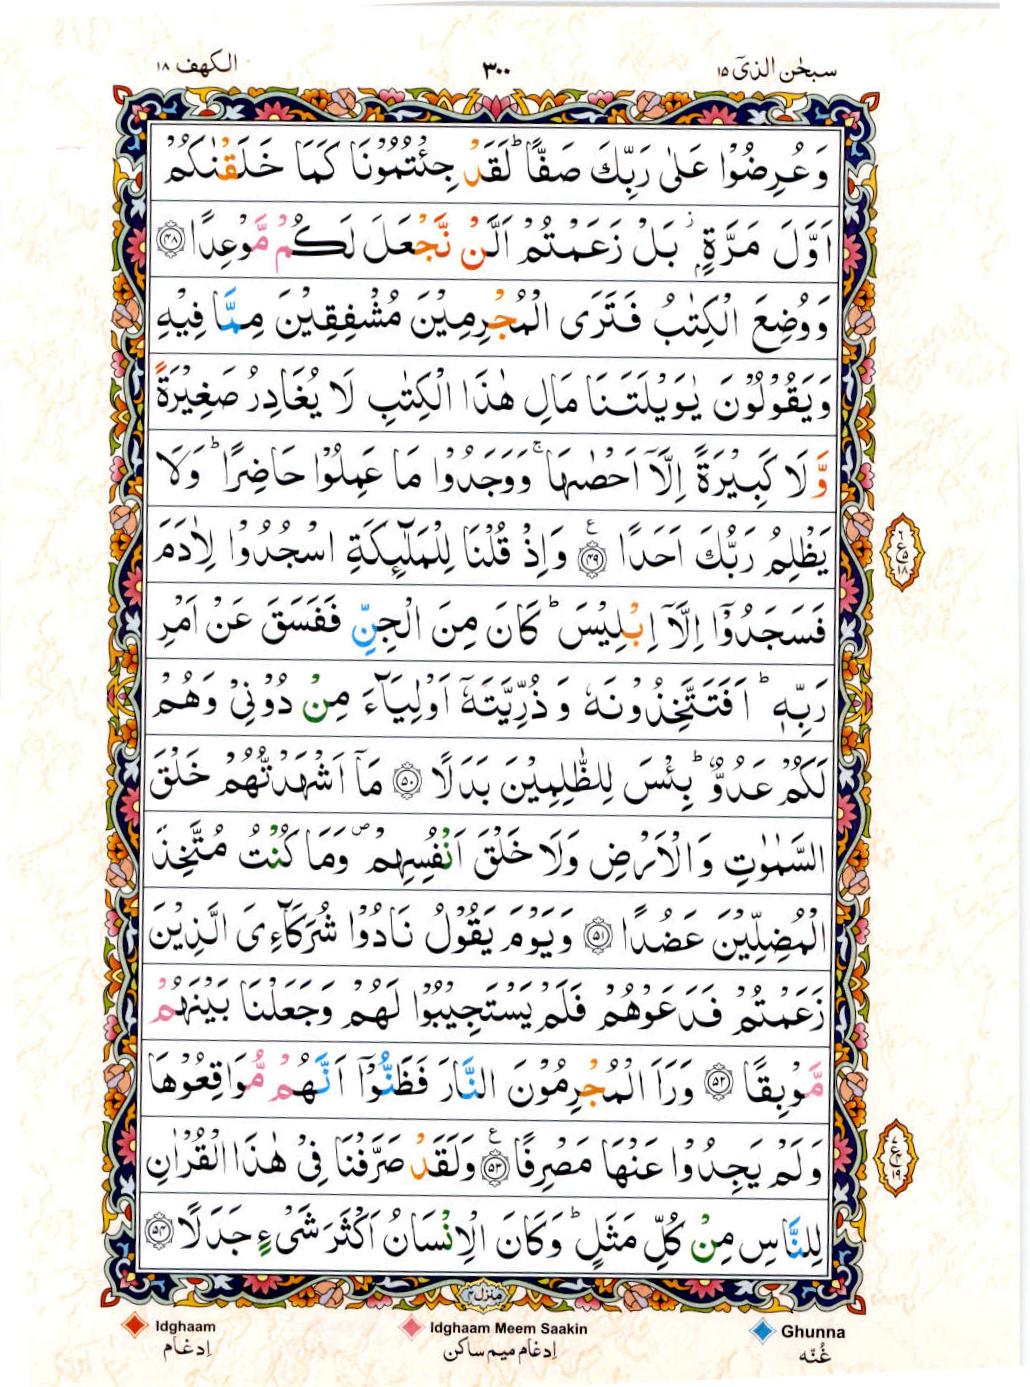 سبحٰن الذیٓ ۱۵
۳۰۰
الکهف ۱۸
وَعُرِضُوْا عَلٰی رَبِّكَ صَفًّا ؕ لَقَدْ جِئْتُمُوْنَا كَمَا خَلَقْنٰكُمْ
اَوَّلَ مَرَّةٍۭ ؗ بَلْ زَعَمْتُمْ اَلَّنْ نَّجْعَلَ لَكُمْ مَّوْعِدًا ﴿۴۸﴾
وَوُضِعَ الْكِتٰبُ فَتَرَی الْمُجْرِمِیْنَ مُشْفِقِیْنَ مِمَّا فِیْهِ
وَیَقُوْلُوْنَ یٰوَیْلَتَنَا مَالِ هٰذَا الْكِتٰبِ لَا یُغَادِرُ صَغِیْرَةً
وَّلَا كَبِیْرَةً اِلَّاۤ اَحْصٰىهَا ۚ وَوَجَدُوْا مَا عَمِلُوْا حَاضِرًا ؕ وَلَا
یَظْلِمُ رَبُّكَ اَحَدًا ﴿۴۹﴾ ع وَاِذْ قُلْنَا لِلْمَلٰٓىِٕكَةِ اسْجُدُوْا لِاٰدَمَ
فَسَجَدُوْۤا اِلَّاۤ اِبْلِیْسَ ؕ كَانَ مِنَ الْجِنِّ فَفَسَقَ عَنْ اَمْرِ
رَبِّهٖ ؕ اَفَتَتَّخِذُوْنَهٗ وَذُرِّیَّتَهٗۤ اَوْلِیَآءَ مِنْ دُوْنِیْ وَهُمْ
لَكُمْ عَدُوٌّ ؕ بِئْسَ لِلظّٰلِمِیْنَ بَدَلًا ﴿۵۰﴾ مَاۤ اَشْهَدْتُّهُمْ خَلْقَ
السَّمٰوٰتِ وَالْاَرْضِ وَلَا خَلْقَ اَنْفُسِهِمْ ۪ وَمَا كُنْتُ مُتَّخِذَ
الْمُضِلِّیْنَ عَضُدًا ﴿۵۱﴾ وَیَوْمَ یَقُوْلُ نَادُوْا شُرَكَآءِیَ الَّذِیْنَ
زَعَمْتُمْ فَدَعَوْهُمْ فَلَمْ یَسْتَجِیْبُوْا لَهُمْ وَجَعَلْنَا بَیْنَهُمْ
مَّوْبِقًا ﴿۵۲﴾ وَرَاَ الْمُجْرِمُوْنَ النَّارَ فَظَنُّوْۤا اَنَّهُمْ مُّوَاقِعُوْهَا
وَلَمْ یَجِدُوْا عَنْهَا مَصْرِفًا ﴿۵۳﴾ ع وَلَقَدْ صَرَّفْنَا فِیْ هٰذَا الْقُرْاٰنِ
لِلنَّاسِ مِنْ كُلِّ مَثَلٍ ؕ وَكَانَ الْاِنْسَانُ اَكْثَرَ شَیْءٍ جَدَلًا ﴿۵۴﴾
منزل ۴
Idghaam
اِدغام
Idghaam Meem Saakin
اِدغام میم ساکن
Ghunna
غُنّه